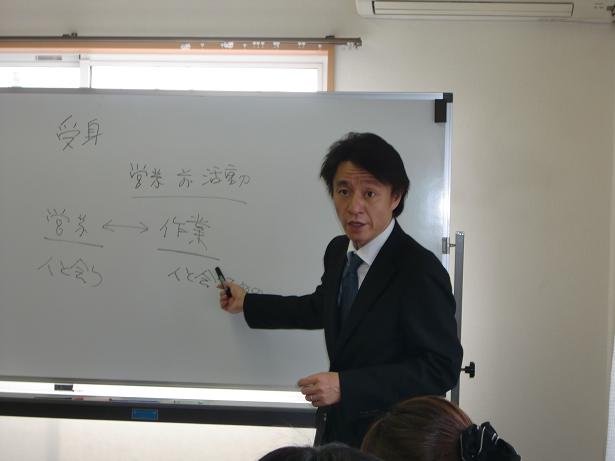 受身
営業前活動
営業 ↔ 作業
人と会う
人と会